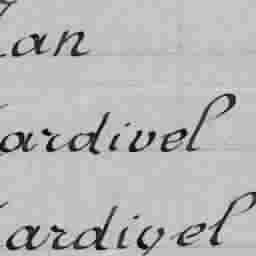 an
ardivel
ardivel